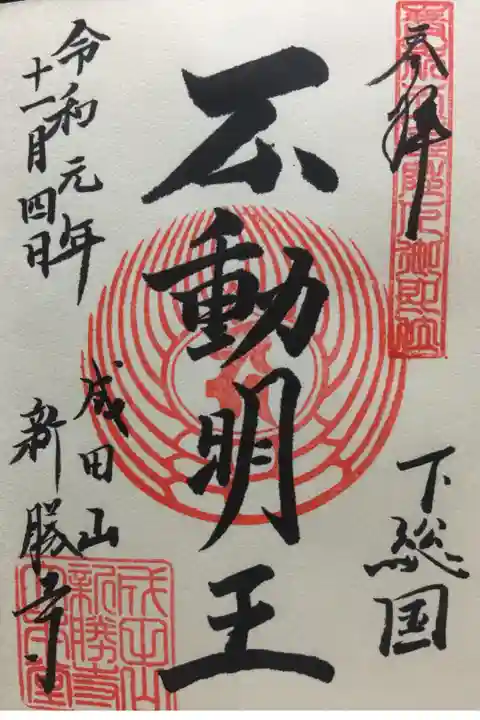 参拝
下総国
不動明王
令和元年
十一月四日
成田山
新勝寺
成田山
新勝寺